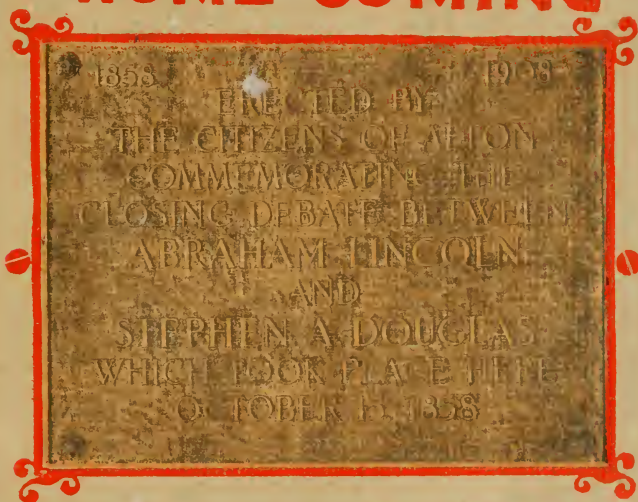 HOME COMING
1858 1908
ERECTED BY
THE CITIZENS OF ALTON
COMMEMORATING THE
CLOSING DEBATE BETWEEN
ABRAHAM LINCOLN
AND
STEPHEN A DOUGLAS
WHICH TOOK PLACE HERE
OCTOBER 1858